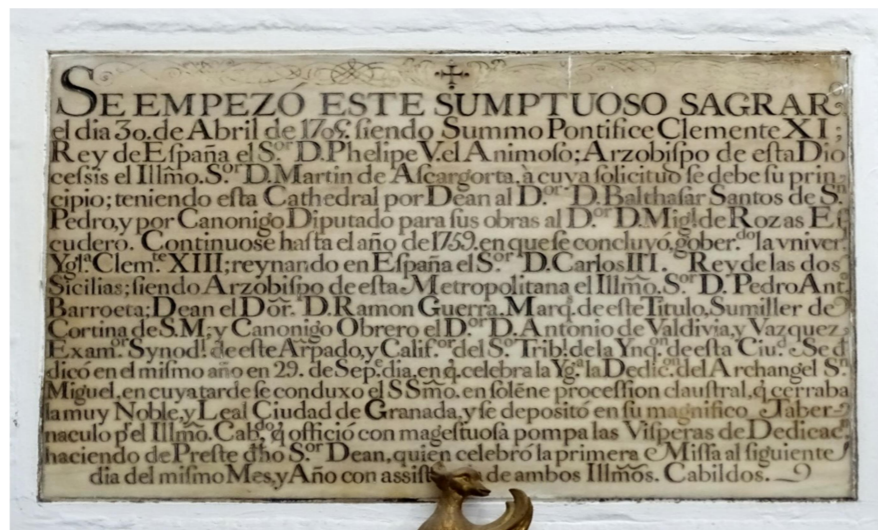 SE EMPEZÓ ESTE SUMPTUOSO SAGRAR.º
el dia 30. de Abril de 1705. siendo Summo Pontifice Clemente XI;
Rey de España el S.ºʳ D. Phelipe V. el Animoso; Arzobispo de esta Dio
cessis el Illm̃o. S.ºʳ D. Martin de Ascargorta, à cuya solicitud se debe su prin-
cipio; teniendo esta Cathedral por Dean al D.ºʳ D. Balthasar Santos de S.ⁿ
Pedro, y por Canonigo Diputado para sus obras al D.ºʳ D. Mig.ˡ de Rozas Es
cudero. Continuose hasta el año de 1759. en que se concluyó, gober.ᵈᵒ la vniver.ˡ
Ygl.ª Clem.ᵗᵉ XIII; reynando en España el S.ºʳ D. Carlos III. Rey de las dos
Sicilias; siendo Arzobispo de esta Metropolitana el Illm̃o. S.ºʳ D. Pedro Ant.º
Barroeta; Dean el Dõr. D. Ramon Guerra. Marq.ˢ de este Titulo, Sumiller de
Cortina de S.M; y Canonigo Obrero el D.ºʳ D. Antonio de Valdivia, y Vazquez,
Exam.ºʳ Synod.ˡ de este Arp̃ado, y Calif.ºʳ del S.º Trib.ˡ de la Ynq.ⁿ de esta Ciu.ᵈ Se d
dicó en el mismo año en 29. de Sep.ᵉ dia, en q̃. celebra la Yg.ª la Dedic.ᵒⁿ del Archangel S.ⁿ
Miguel, en cuya tarde se conduxo el SSm̃o. en solẽne procession claustral, q̃ cerraba
la muy Noble, y Leal Ciudad de Granada, y se depositó en su magnifico Taber-
naculo p.ʳ el Illm̃o. Cab.ᵈᵒ q̃ offició con magestuosa pompa las Visperas de Dedicac.ⁿ
haciendo de Preste dho S.ºʳ Dean, quien celebró la primera Missa al siguiente
dia del mismo Mes, y Año con de ambos Illm̃os. Cabildos.